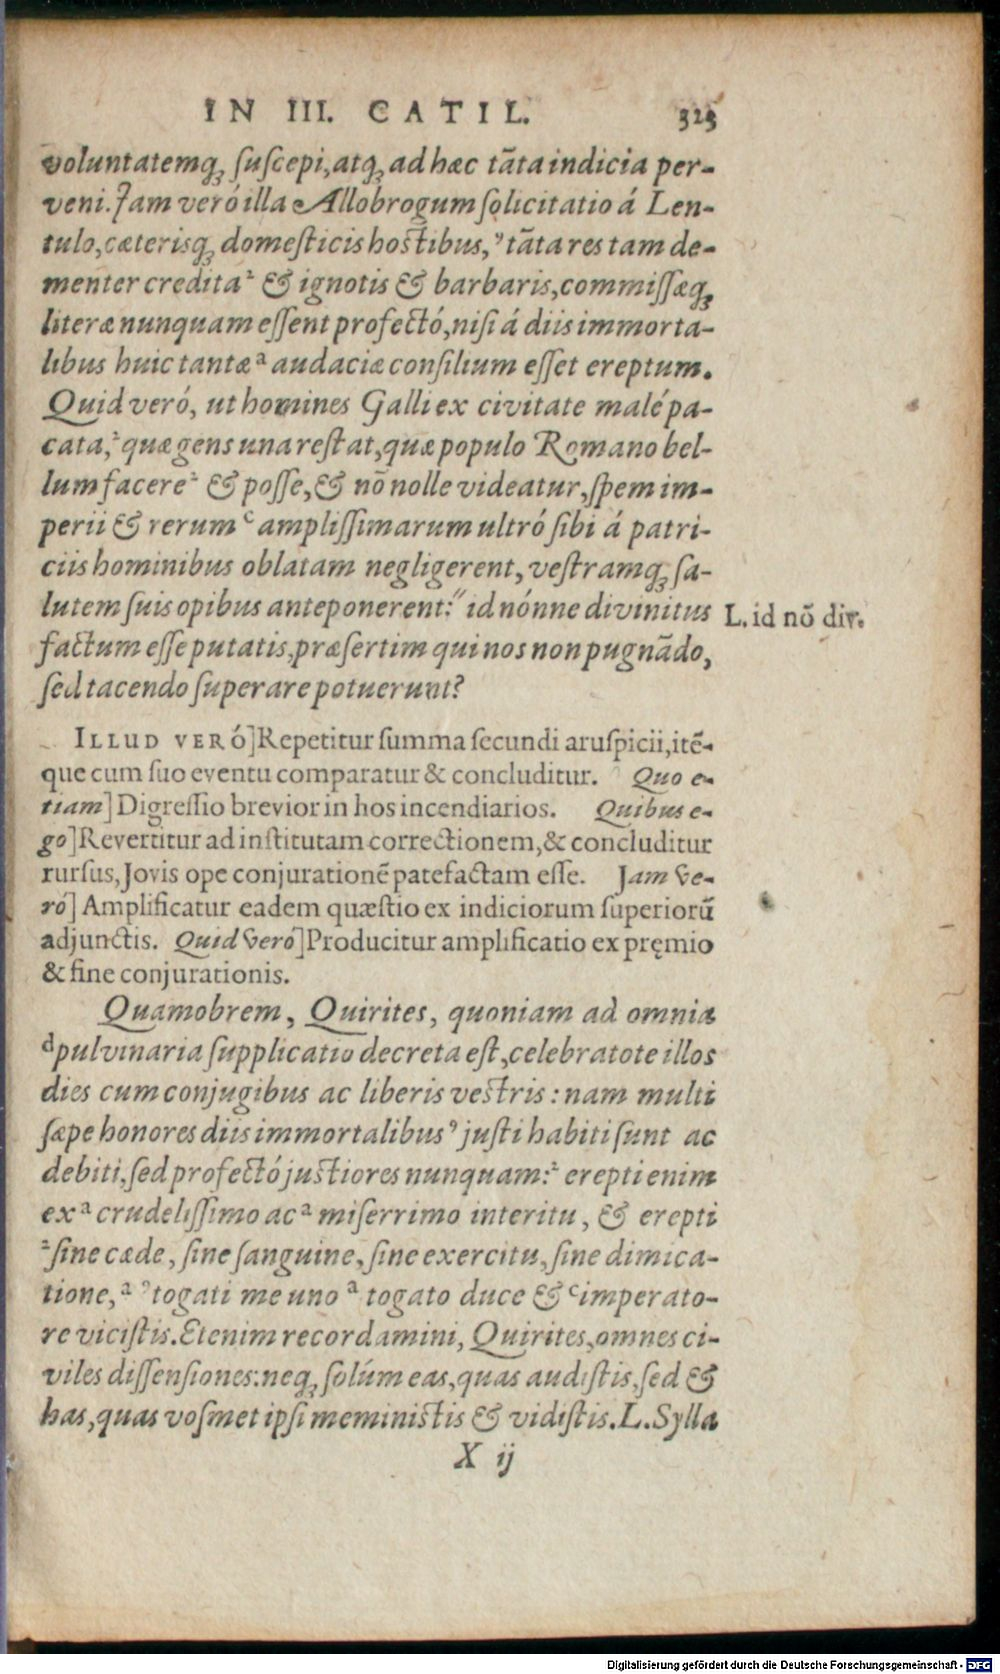 IN III. CATIL. 323
voluntatemq́ꝫ suscepi, atqꝫ ad hæc tãta indicia per-
veni. Jam veró illa Allobrogum solicitatio á Len-
tulo, cæterisqꝫ domesticis hostibus, ʾtãta res tam de-
menter credita² & ignotis & barbaris, commissæqꝫ
literæ nunquam essent profectó, nisi á diis immorta-
libus huic tantæ ᵃ audaciæ consilium esset ereptum.
Quid veró, ut homines Galli ex civitate malé pa-
cata, ² quæ gens una restat, quæ populo Romano bel-
lum facere ² & posse, & nõ nolle videatur, spem im-
perii & rerum ᶜ amplissimarum ultró sibi á patri-
ciis hominibus oblatam negligerent, vestramqꝫ sa-
lutem suis opibus anteponerent: ″ id nónne divinitus
L. id nõ div.
factum esse putatis, præsertim qui nos non pugnãdo,
sed tacendo superare potuerunt?
ILLUD VERÓ] Repetitur summa secundi aruspicii, itẽ-
que cum suo eventu comparatur & concluditur. Quo e-
tiam] Digressio brevior in hos incendiarios. Quibus e-
go] Revertitur ad institutam correctionem, & concluditur
rursus, Jovis ope conjurationẽ patefactam esse. Jam ve-
ró] Amplificatur eadem quæstio ex indiciorum superiorũ
adjunctis. Quid veró] Producitur amplificatio ex pręmio
& fine conjurationis.
Quamobrem, Quirites, quoniam ad omnia
ᵈ pulvinaria supplicatio decreta est, celebratote illos
dies cum conjugibus ac liberis vestris: nam multi
sæpe honores diis immortalibus ʾ justi habiti sunt ac
debiti, sed profectó justiores nunquam: ² erepti enim
ex ᵃ crudelissimo ac ᵃ miserrimo interitu, & erepti
² sine cæde, sine sanguine, sine exercitu, sine dimica-
tione, ᵃ ʾ togati me uno ᵃ togato duce & ᶜ imperato-
re vicistis. Etenim recordamini, Quirites, omnes ci-
viles dissensiones: neqꝫ solúm eas, quas audistis, sed &
has, quas vosmet ipsi meministis & vidistis. L. Sylla
X ij
Digitalisierung gefördert durch die Deutsche Forschungsgemeinschaft - DFG